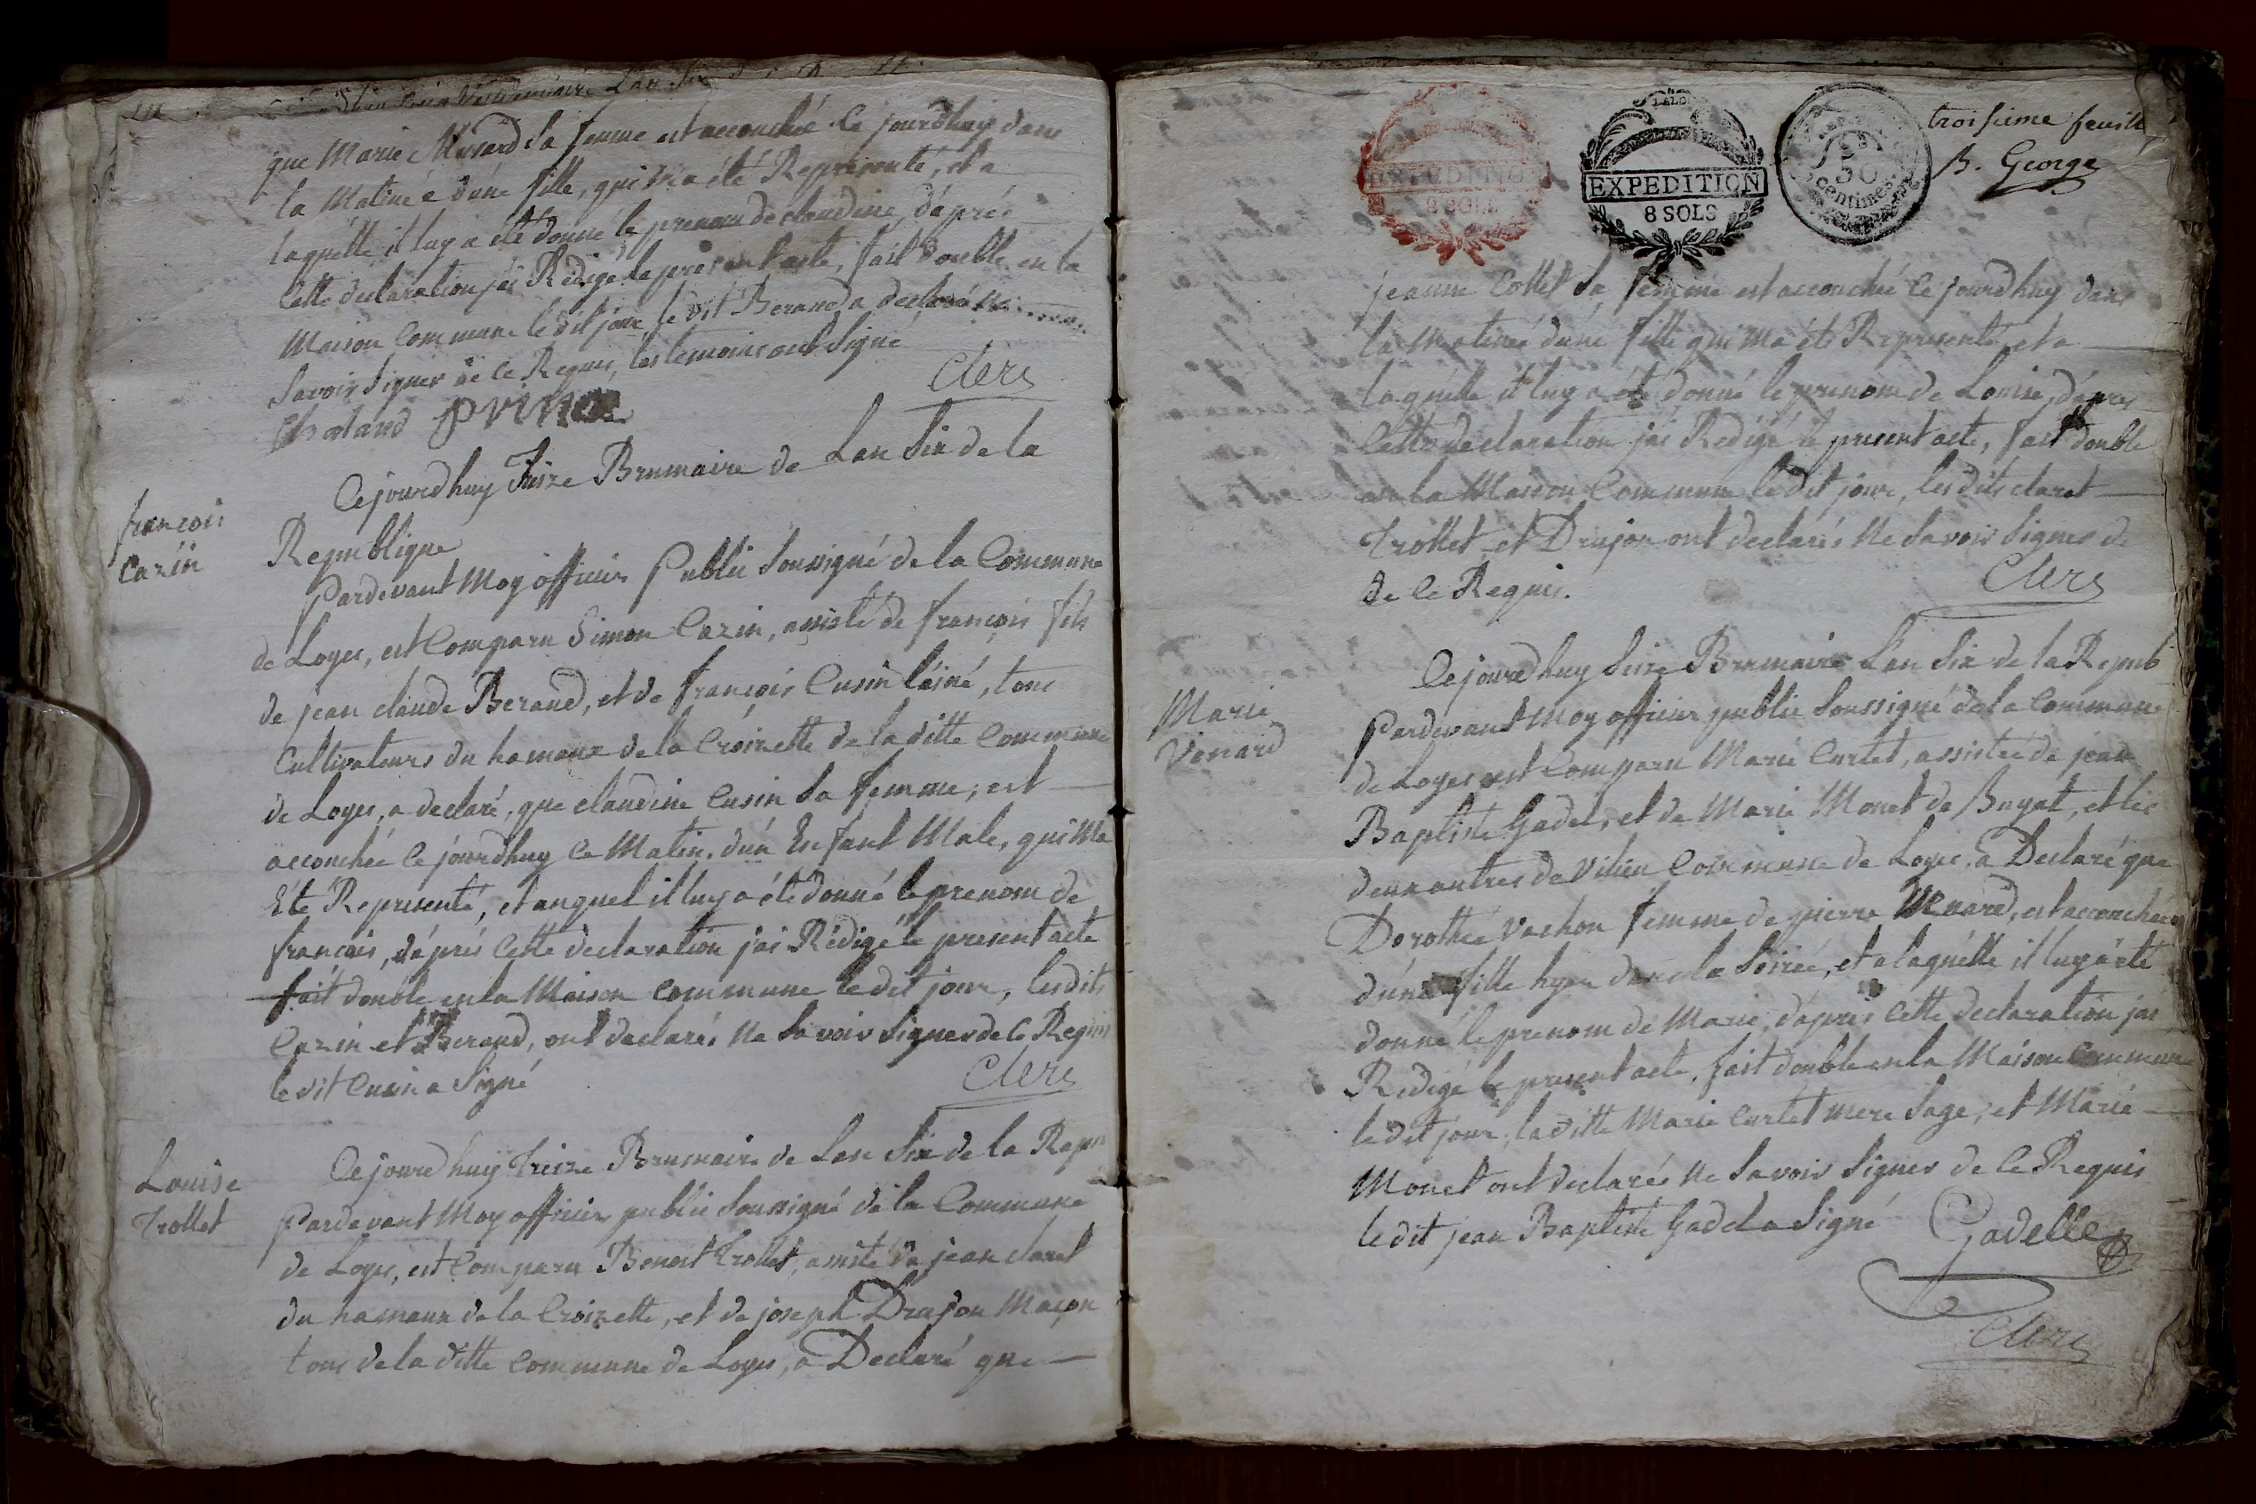 que Marie Musard sa femme est accouchée ce jourdhuy dans
la Matiné e d'une fille, qui m'a été Représenté, et a
laquelle il luy a été donné le prenom de claudine, d'aprés
cette declaration j'ai Redigé le present acte, fait double en la
Maison Commune le dit jour, le dit Beraud a declaré Ne
Savoir Signer de ce Requis, les temoins ont Signé
Charland pvino Clerc
françois
Cazin
Cejourdhuy Treize Brumaire de Lan Six de la
Republique
Pardevant Moy officier Public Soussigné de la Commune
de Loyes, est Comparu Simon Cazin, assisté de françois fils
de jean claude Beraud, et de françois Cusin l'ainé, tous
Cultivateurs du hameaux de la Croizette de la ditte Commune
de Loyes, a declaré, que claudine Cusin Sa femme, est
accouchée Ce jourdhuy Ce Matin, d'un Enfant Male, qui Ma
Eté Représenté, et auquel il luy a été donné le prenom de
françois, d'aprés Cette declaration j'ai Rédigé le present acte
fait double en la Maison Commune le dit jour, les dits
Cazin et Beraud, ont declarés Ne Savoir Signer de Ce Requis
le dit Cusin a Signé Clerc
Louise
Trollet
Cejourdhuy Treize Brumaire de Lan Six de la Repu
Pardevant Moy officier public Soussigné de la Commune
de Loyes, est Comparu Benoit Trollet, assisté de jean claret
du hameaux de la Croizette, et de joseph Drujon Maçon
tous de la ditte Commune de Loyes, a Declaré que
EXPEDITION
8 SOLS
50
centimes
troisieme feuille
B. George
jeanne Collet Sa femme est accouchée Ce jourdhuy dans
la Matinée d'une fille qui M'a été Representé et a
laquelle il luy a été donné le prenom de Louise, d'apres
Cette declaration j'ai Redigé le present acte, fait double
en la Maison Commune le dit jour, les dits claret
Trollet et Drujon ont declarés Ne Savoir Signer de
de Ce Requis. Clerc
Marie
Venard
Cejourdhuy Seize Brumaire L'an Six de la Repub
Pardevant Moy officier public Soussigné de la Commune
de Loyes est Comparu Marie Curtet, assistée de jean
Baptiste Gadel, et de Marie Monet de Buyat, et les
deux autres de Vilieu Commune de Loyes, a Declaré que
Dorothée Vachon femme de pierre Venard, est accouchée
d'une fille hyer dans la Soirée, et a laquelle il luy a été
donné le prenom de Marie, d'aprés Cette declaration j'ai
Redigé le present acte, fait double en la Maison Commune
le dit jour, la ditte Marie Curtet mere Sage, et Marie
Monet ont declarés Ne Savoir Signer de Ce Requis
le dit jean Baptiste Gadel a Signé Gadelle
Clerc